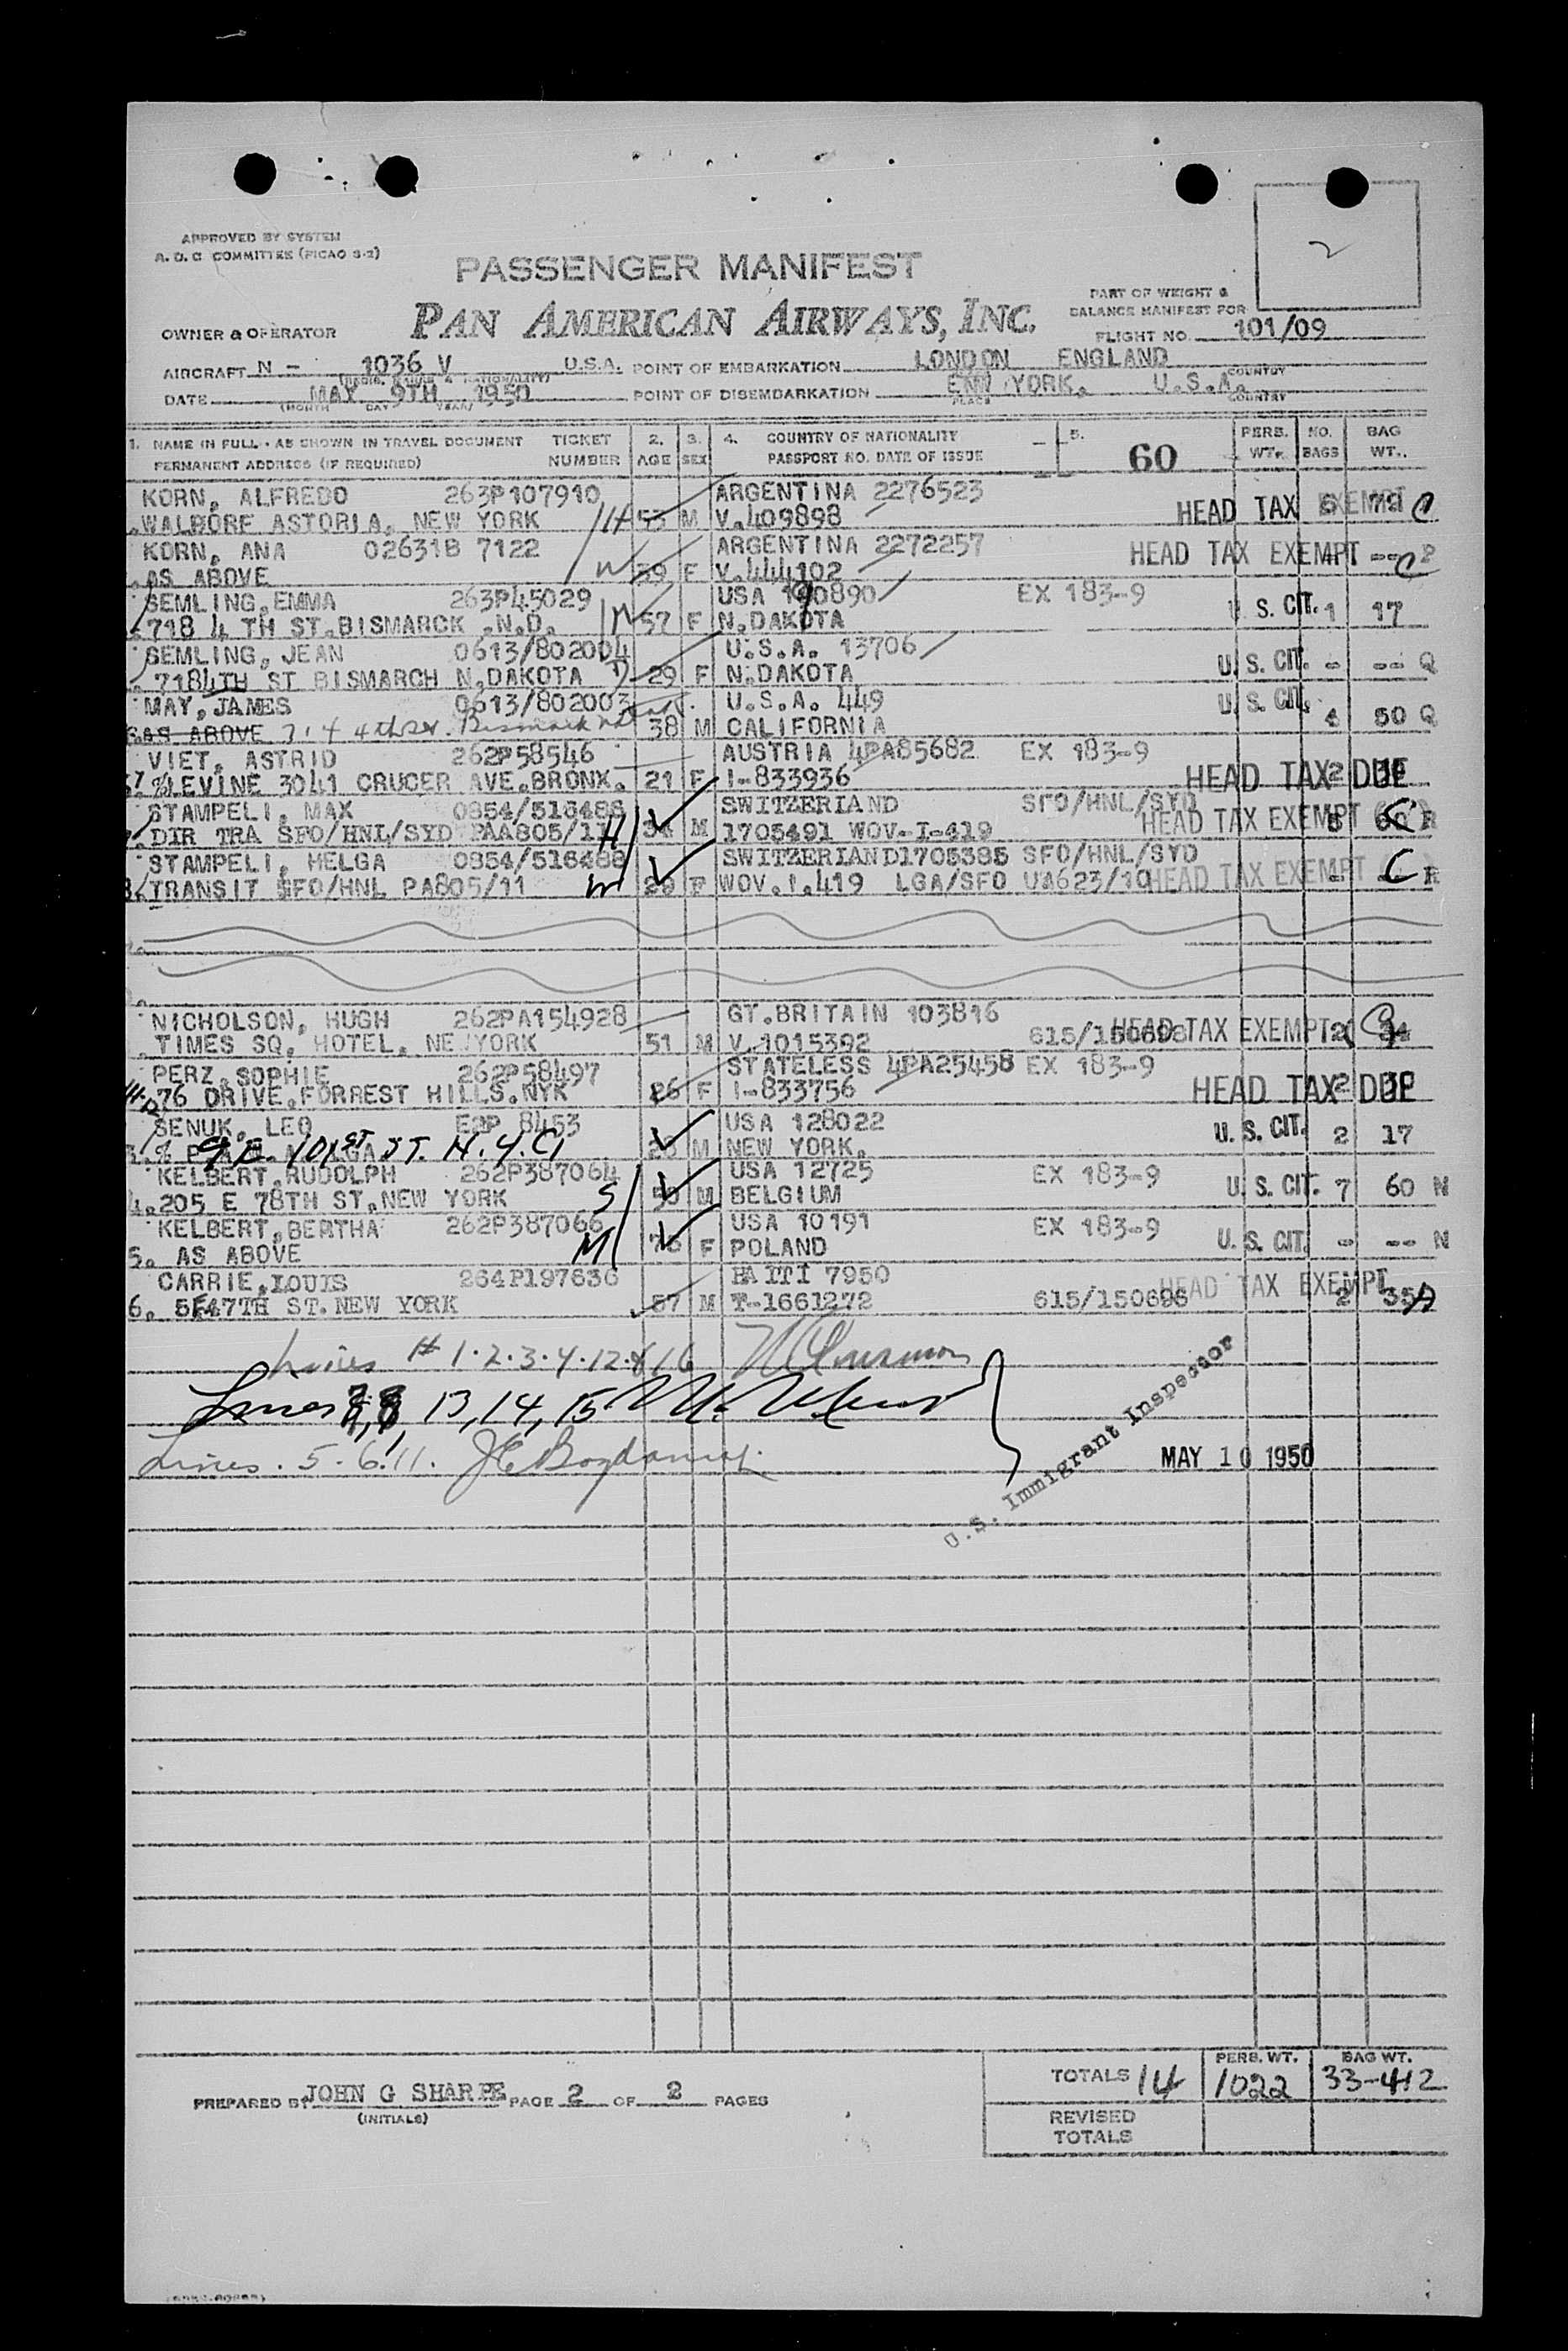 APPROVED BY SYSTEM
A. D. C COMMITTEE (PICAO S-2)
2
PASSENGER MANIFEST
PAN AMERICAN AIRWAYS, INC.
PART OF WEIGHT &
BALANCE MANIFEST FOR
OWNER & OPERATOR
FLIGHT NO. 101/09
AIRCRAFT N - 1036 V U.S.A. POINT OF EMBARKATION LONDON ENGLAND
COUNTRY
DATE MAY 9TH 1950 POINT OF DISEMBARKATION ENW YORK, U.S.A.
(MONTH DAY YEAR) PLACE COUNTRY
1. NAME IN FULL - AS SHOWN IN TRAVEL DOCUMENT TICKET 2. 3. 4. COUNTRY OF NATIONALITY 5. 60 PERS. NO. BAG
PERMANENT ADDRESS (IF REQUIRED) NUMBER AGE SEX PASSPORT NO. DATE OF ISSUE WT. BAGS WT.
KORN, ALFREDO 263P107910 ARGENTINA 2276523
WALDORE ASTORIA, NEW YORK H 53 M V.409898 HEAD TAX EXEMPT C
KORN, ANA 02631B 7122 ARGENTINA 2272257 HEAD TAX EXEMPT -- C
AS ABOVE W 39 F V.444102
SEMLING,EMMA 263P45029 USA 190890 EX 183-9
718 4 TH ST.BISMARCK .N.D. 57 F N.DAKOTA U. S. CIT. 1 17
SEMLING, JEAN 0613/802004 U.S.A. 13706
7184TH ST BISMARCH N,DAKOTA D 29 F N.DAKOTA U. S. CIT. - -- Q
MAY,JAMES 0613/802003 U.S.A. 449 U. S. CIT.
AS ABOVE 714 4th St. Bismark 38 M CALIFORNIA 50 Q
VIET, ASTRID 262P58546 AUSTRIA 4PA85682 EX 183-9
%LEVINE 3041 CRUGER AVE.BRONX. 21 F I-833936 HEAD TAX DUE 2
STAMPELI, MAX 0854/516488 SWITZERIAND SFO/HNL/SYD
DIR TRA SFO/HNL/SYD PAA805/11 H 34 M 1705491 WOV-I-419 HEAD TAX EXEMPT C
STAMPELI, HELGA 0854/516488 SWITZERIAND1705385 SFO/HNL/SYD
TRANSIT SFO/HNL PA805/11 W 29 F WOV.I.419 LGA/SFO UA623/10 HEAD TAX EXEMPT C R
NICHOLSON, HUGH 262PA154928 GT.BRITAIN 103816
TIMES SQ. HOTEL. NE YORK 51 M V.1015392 615/150696 HEAD TAX EXEMPT
PERZ,SOPHIE 262P58497 STATELESS 4PA25458 EX 183-9
76 DRIVE.FORREST HILLS.NYK 26 F I-833756 HEAD TAX DUE 2
SENUK, LEO E2P 8453 USA 128022
9 E. 101ST ST. N.Y.C. 28 M NEW YORK. U. S. CIT. 2 17
KELBERT,RUDOLPH 262P387064 USA 12725 EX 183-9
205 E 78TH ST.NEW YORK S M BELGIUM U. S. CIT. 7 60 N
KELBERT,BERTHA 262P387066 USA 10191 EX 183-9
5. AS ABOVE M F POLAND U. S. CIT. - -- N
CARRIE,LOUIS 264P197636 HAITI 7950
6. 5E47TH ST.NEW YORK 57 M T-1661272 615/150696 HEAD TAX EXEMPT 2 35
Lines # 1.2.3.4.12.& 16
Lines 7,8, 13, 14, 15
Lines. 5. 6. 11.
U.S. Immigrant Inspector
MAY 10 1950
PREPARED BY JOHN G SHARPE PAGE 2 OF 2 PAGES
(INITIALS)
TOTALS 14 PERS. WT. 1022 BAG WT. 33-412
REVISED
TOTALS